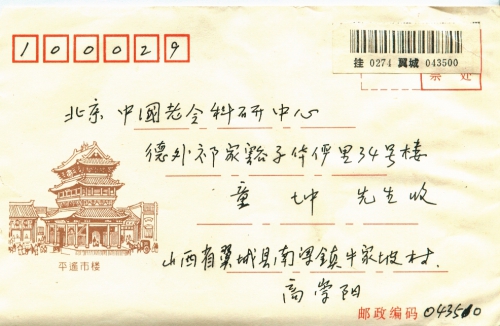 100029
挂 0274 翼城 043500
北京 中国老令科研中心
德外祁家豁子华俨里34号楼
童 坤 先生收
平遥市楼
山西省翼城县南梁鎮牛家坡村.
高学阳
邮政编码 043500